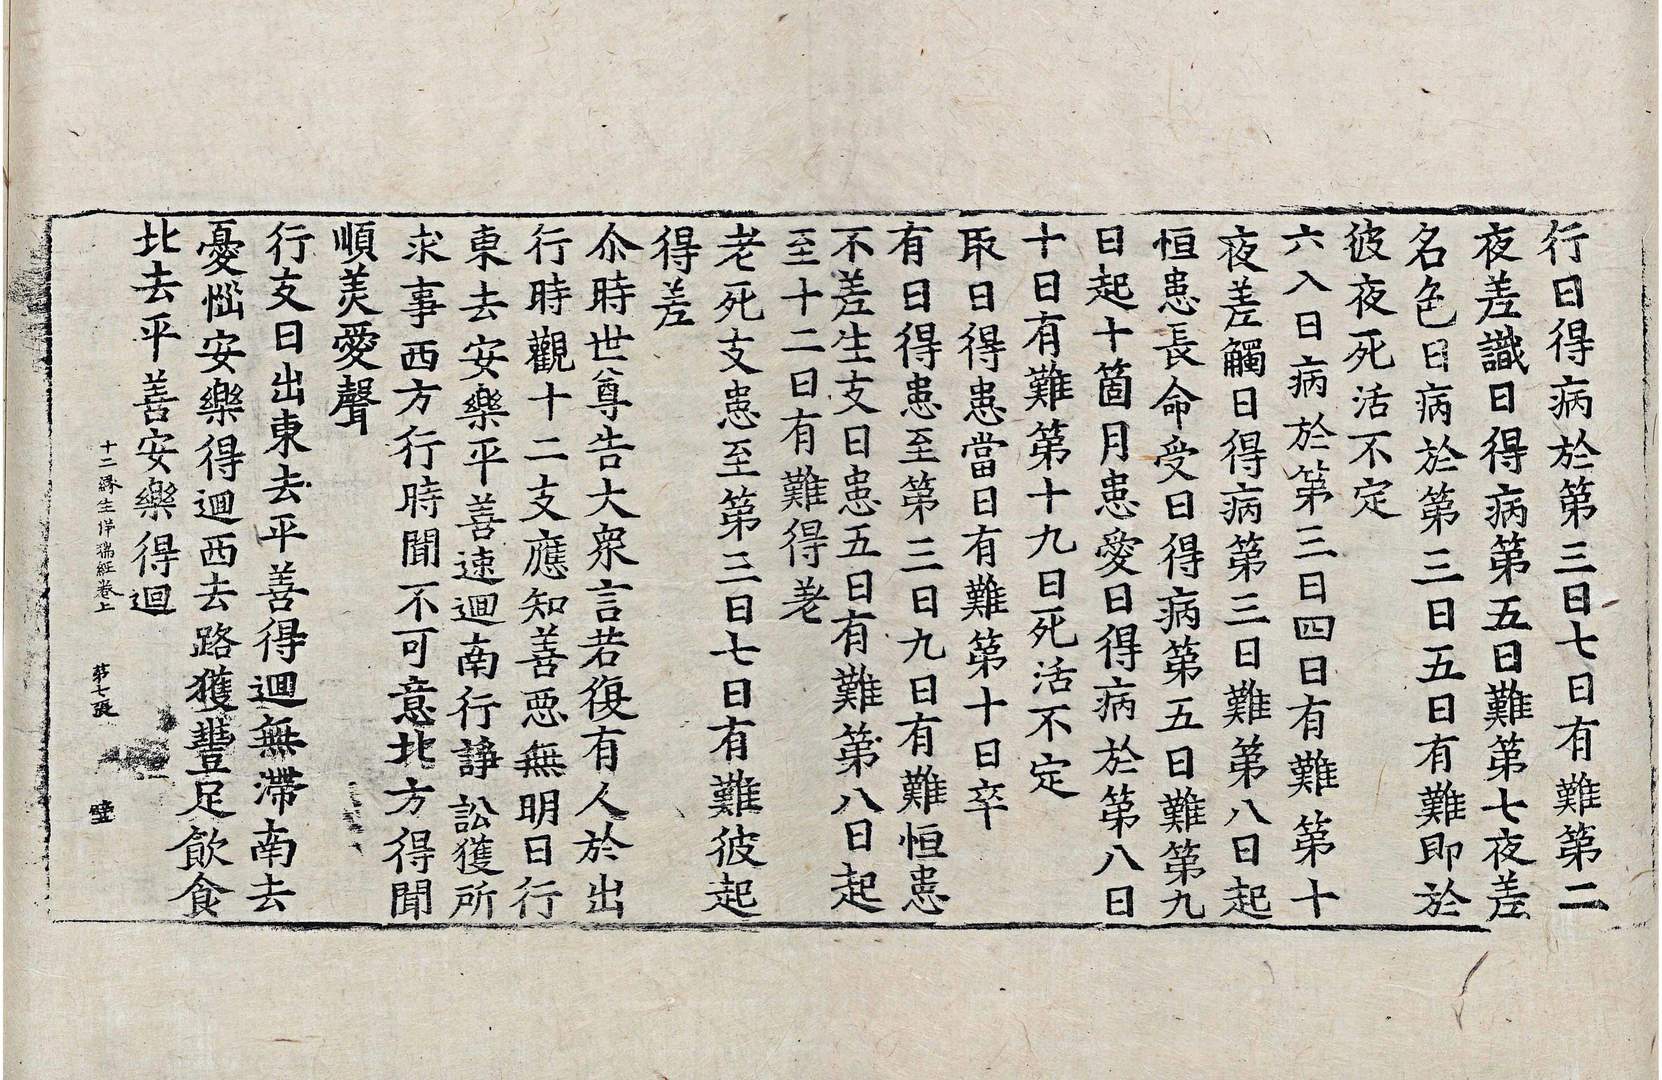 行日得病於第三日七日有難第二
夜差識日得病第五日難第七夜差
名色日病於第三日五日有難即於
彼夜死活不定
六入日病於第三日四日有難第十
夜差觸日得病第三日難第八日起
恒患長命受日得病第五日難第九
日起十箇月患愛日得病於第八日
十日有難第十九日死活不定
取日得患當日有難第十日卒
有日得患至第三日九日有難恒患
不差生支日患五日有難第八日起
至十二日有難得差
老死支患至第三日七日有難彼起
得差
尒時世尊告大衆言若復有人於出
行時觀十二支應知善惡無明日行
東去安樂平善速迴南行諍訟獲所
求事西方行時聞不可意北方得聞
順美愛聲
行支日出東去平善得迴無滯南去
憂惱安樂得迴西去路獲豐足飲食
北去平善安樂得迴
十二緣生祥瑞經卷上 第七張 壁